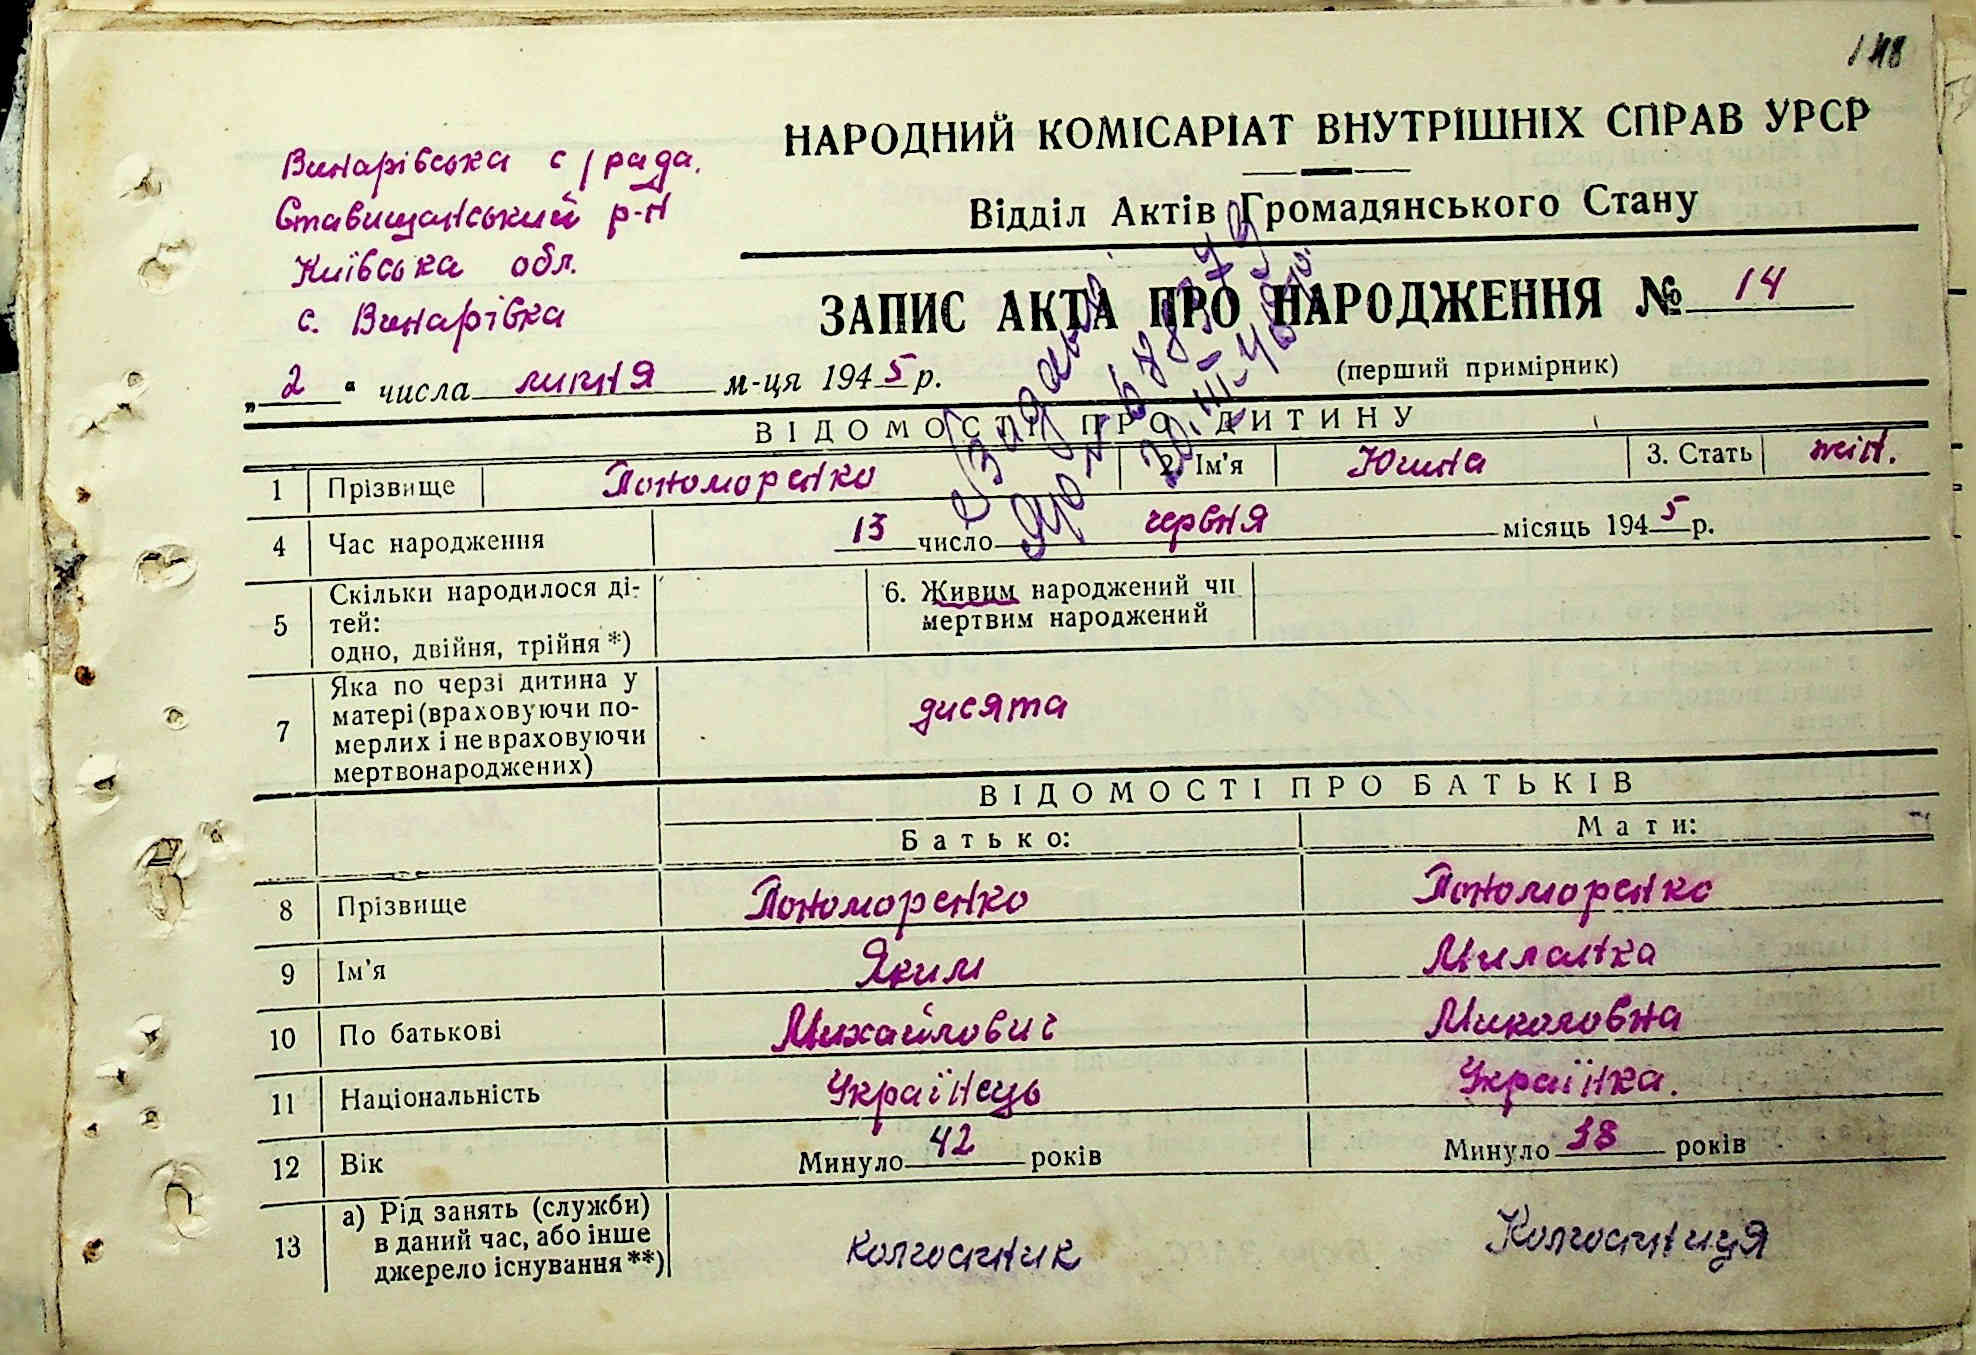 148
Винарівська с/рада.
Ставищанський р-н
Київська обл.
с. Винарівка
НАРОДНИЙ КОМІСАРІАТ ВНУТРІШНІХ СПРАВ УРСР
Відділ Актів Громадянського Стану
ЗАПИС АКТА ПРО НАРОДЖЕННЯ № 14
(перший примірник)
„ 2 “ числа липня м-ця 1945 р.
ВІДОМОСТІ ПРО ДИТИНУ
1 Прізвище Пономоренко 2. Ім'я Юлина 3. Стать жін.
4 Час народження 13 число червня місяць 1945 р.
5 Скільки народилося ді-
тей:
одно, двійня, трійня *)
6. Живим народжений чи
мертвим народжений
7 Яка по черзі дитина у
матері (враховуючи по-
мерлих і не враховуючи
мертвонароджених)
дисята
ВІДОМОСТІ ПРО БАТЬКІВ
Батько: Мати:
8 Прізвище Пономоренко Пономоренко
9 Ім'я Яким Миланка
10 По батькові Михайлович Миколовна
11 Національність Українець Українка.
12 Вік Минуло 42 років Минуло 38 років
13 а) Рід занять (служби)
в даний час, або інше
джерело існування **)
колгоспник Колгоспниця